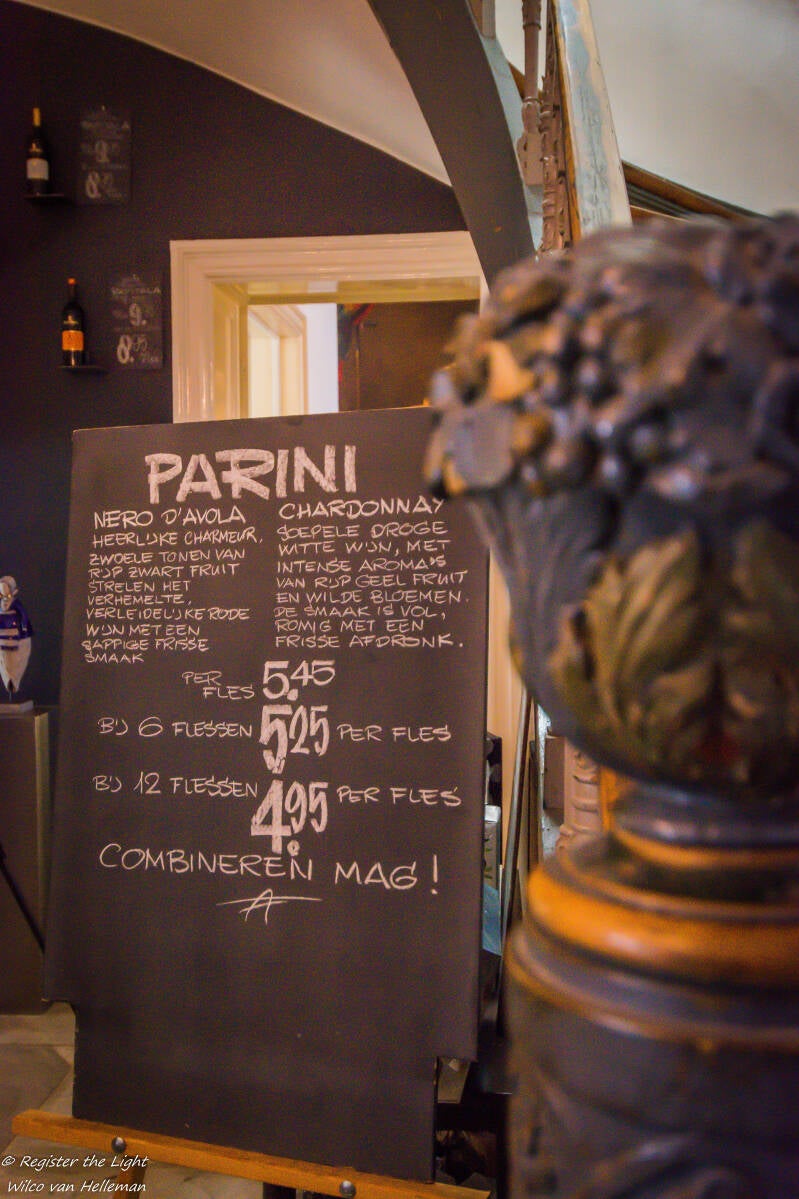 PARINI
NERO D'AVOLA
HEERLIJKE CHARMEUR.
ZWOELE TONEN VAN
RIJP ZWART FRUIT
STRELEN HET
VERHEMELTE,
VERLEIDELIJKE RODE
WIJN MET EEN
SAPPIGE FRISSE
SMAAK
CHARDONNAY
SOEPELE DROGE
WITTE WIJN, MET
INTENSE AROMA'S
VAN RIJP GEEL FRUIT
EN WILDE BLOEMEN.
DE SMAAK IS VOL,
ROMIG MET EEN
FRISSE AFDRONK.
PER FLES 5.45
BIJ 6 FLESSEN 5.25 PER FLES
BIJ 12 FLESSEN 4.95 PER FLES
COMBINEREN MAG!
9.
8.95
© Register the Light
Wilco van Helleman